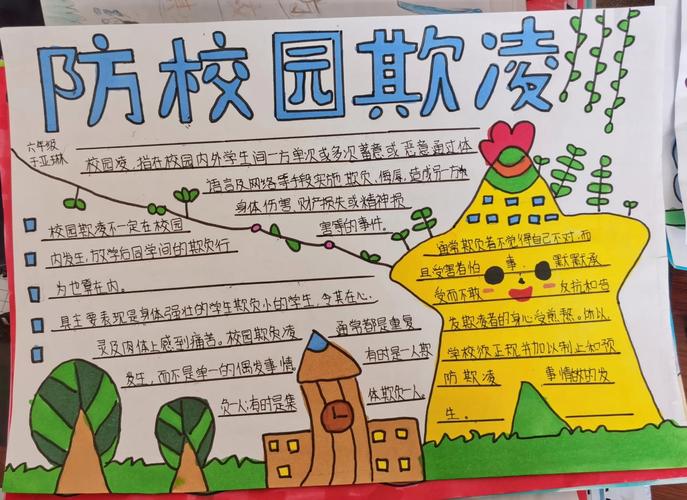 防校园欺凌
六年级
于亚琳
校园凌,指在校园内外学生间一方单次或多次蓄意或恶意通过体
语言及网络等手段实施欺负、侮辱、造成另一方
身体伤害、财产损失或精神损
害等的事件。
校园欺凌不一定在校园
内发生,放学后同学间的欺负行
为也算在内。
具主要表现是身体强壮的学生欺负小的学生,令其在心
灵及肉体上感到痛苦。校园欺负凌
发生,而不是单一的偶发事情
负一人;有时是集
通常都是重复
有时是一人欺
体欺负一人。
通常欺负者不觉得自己不对,而
且受害者怕事,默默承
受而不敢反抗如告
发欺凌者的身心受煎熬。所以
学校须正视并加以制止和预
防欺凌事情的发
生。